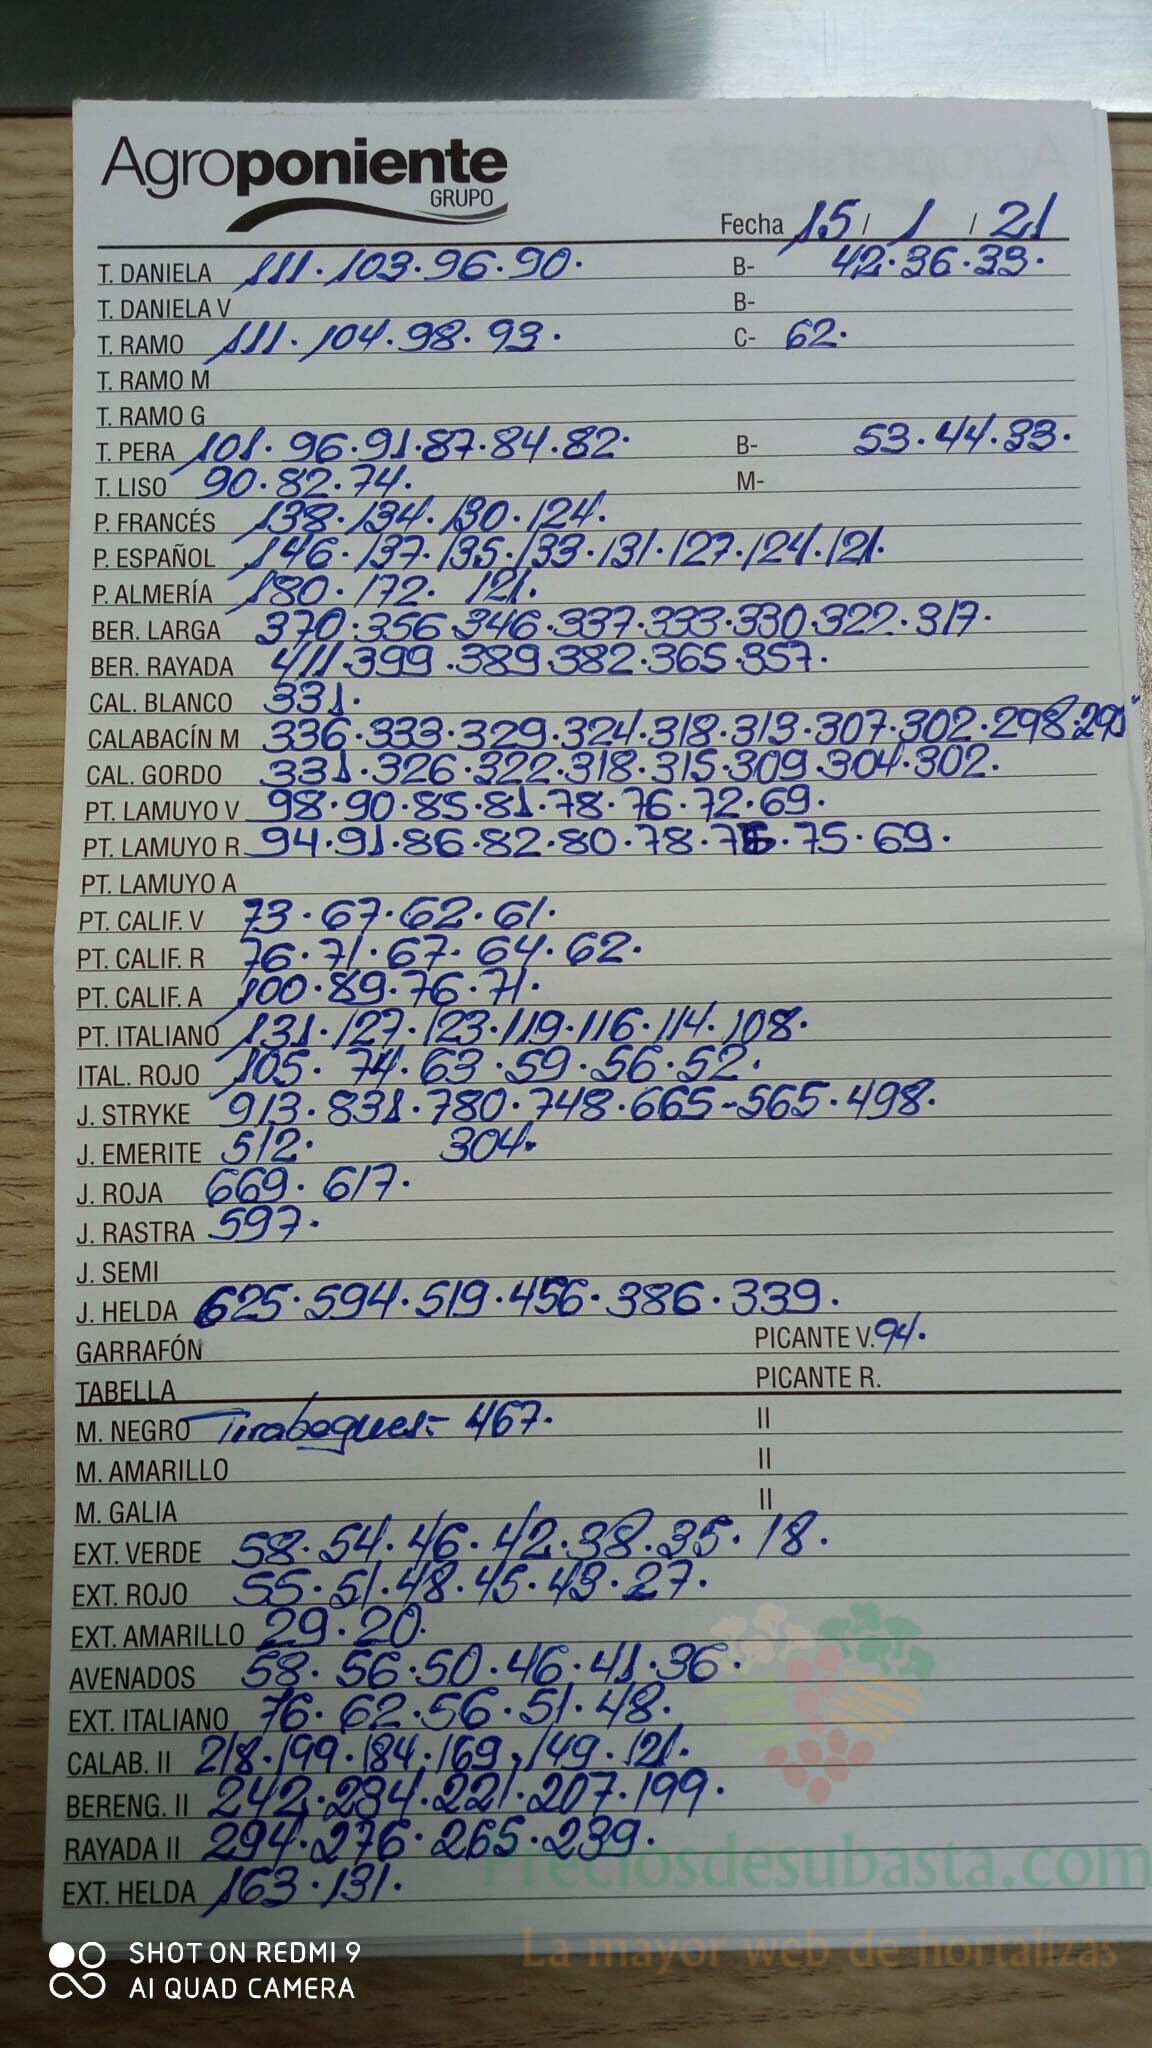 Agroponiente
GRUPO
Fecha 15 / 1 / 21
T. DANIELA 111. 103. 96. 90. B- 42. 36. 33.
T. DANIELA V B-
T. RAMO 111. 104. 98. 93. C- 62.
T. RAMO M
T. RAMO G
T. PERA 101. 96. 91. 87. 84. 82. B- 53. 44. 33.
T. LISO 90. 82. 74. M-
P. FRANCÉS 138. 134. 130. 124.
P. ESPAÑOL 146. 137. 135. 133. 131. 127. 124. 121.
P. ALMERÍA 180. 172. 121.
BER. LARGA 370. 356. 346. 337. 333. 330. 322. 317.
BER. RAYADA 411. 399. 389. 382. 365. 357.
CAL. BLANCO 331.
CALABACÍN M 336. 333. 329. 324. 318. 313. 307. 302. 298.
CAL. GORDO 331. 326. 322. 318. 315. 309. 304. 302.
PT. LAMUYO V 98. 90. 85. 81. 78. 76. 72. 69.
PT. LAMUYO R 94. 91. 86. 82. 80. 78. 75. 69.
PT. LAMUYO A
PT. CALIF. V 73. 67. 62. 61.
PT. CALIF. R 76. 71. 67. 64. 62.
PT. CALIF. A 100. 89. 76. 71.
PT. ITALIANO 131. 127. 123. 119. 116. 114. 108.
ITAL. ROJO 105. 74. 63. 59. 56. 52.
J. STRYKE 913. 831. 780. 748. 665- 565. 498.
J. EMERITE 512. 304.
J. ROJA 669. 617.
J. RASTRA 597.
J. SEMI
J. HELDA 625. 594. 519. 456. 386. 339.
GARRAFÓN PICANTE V. 94.
TABELLA PICANTE R.
M. NEGRO Tirabeques- 467. II
M. AMARILLO II
M. GALIA II
EXT. VERDE 58. 54. 46. 42. 38. 35. 18.
EXT. ROJO 55. 51. 48. 45. 43. 27.
EXT. AMARILLO 29. 20.
AVENADOS 58. 56. 50. 46. 41. 36.
EXT. ITALIANO 76. 62. 56. 51. 48.
CALAB. II 218. 199. 184. 169, 149. 121.
BERENG. II 242. 234. 221. 207. 199.
RAYADA II 294. 276. 265. 239.
Preciosdesubasta.com
EXT. HELDA 163. 131.
La mayor web de hortalizas
SHOT ON REDMI 9
AI QUAD CAMERA